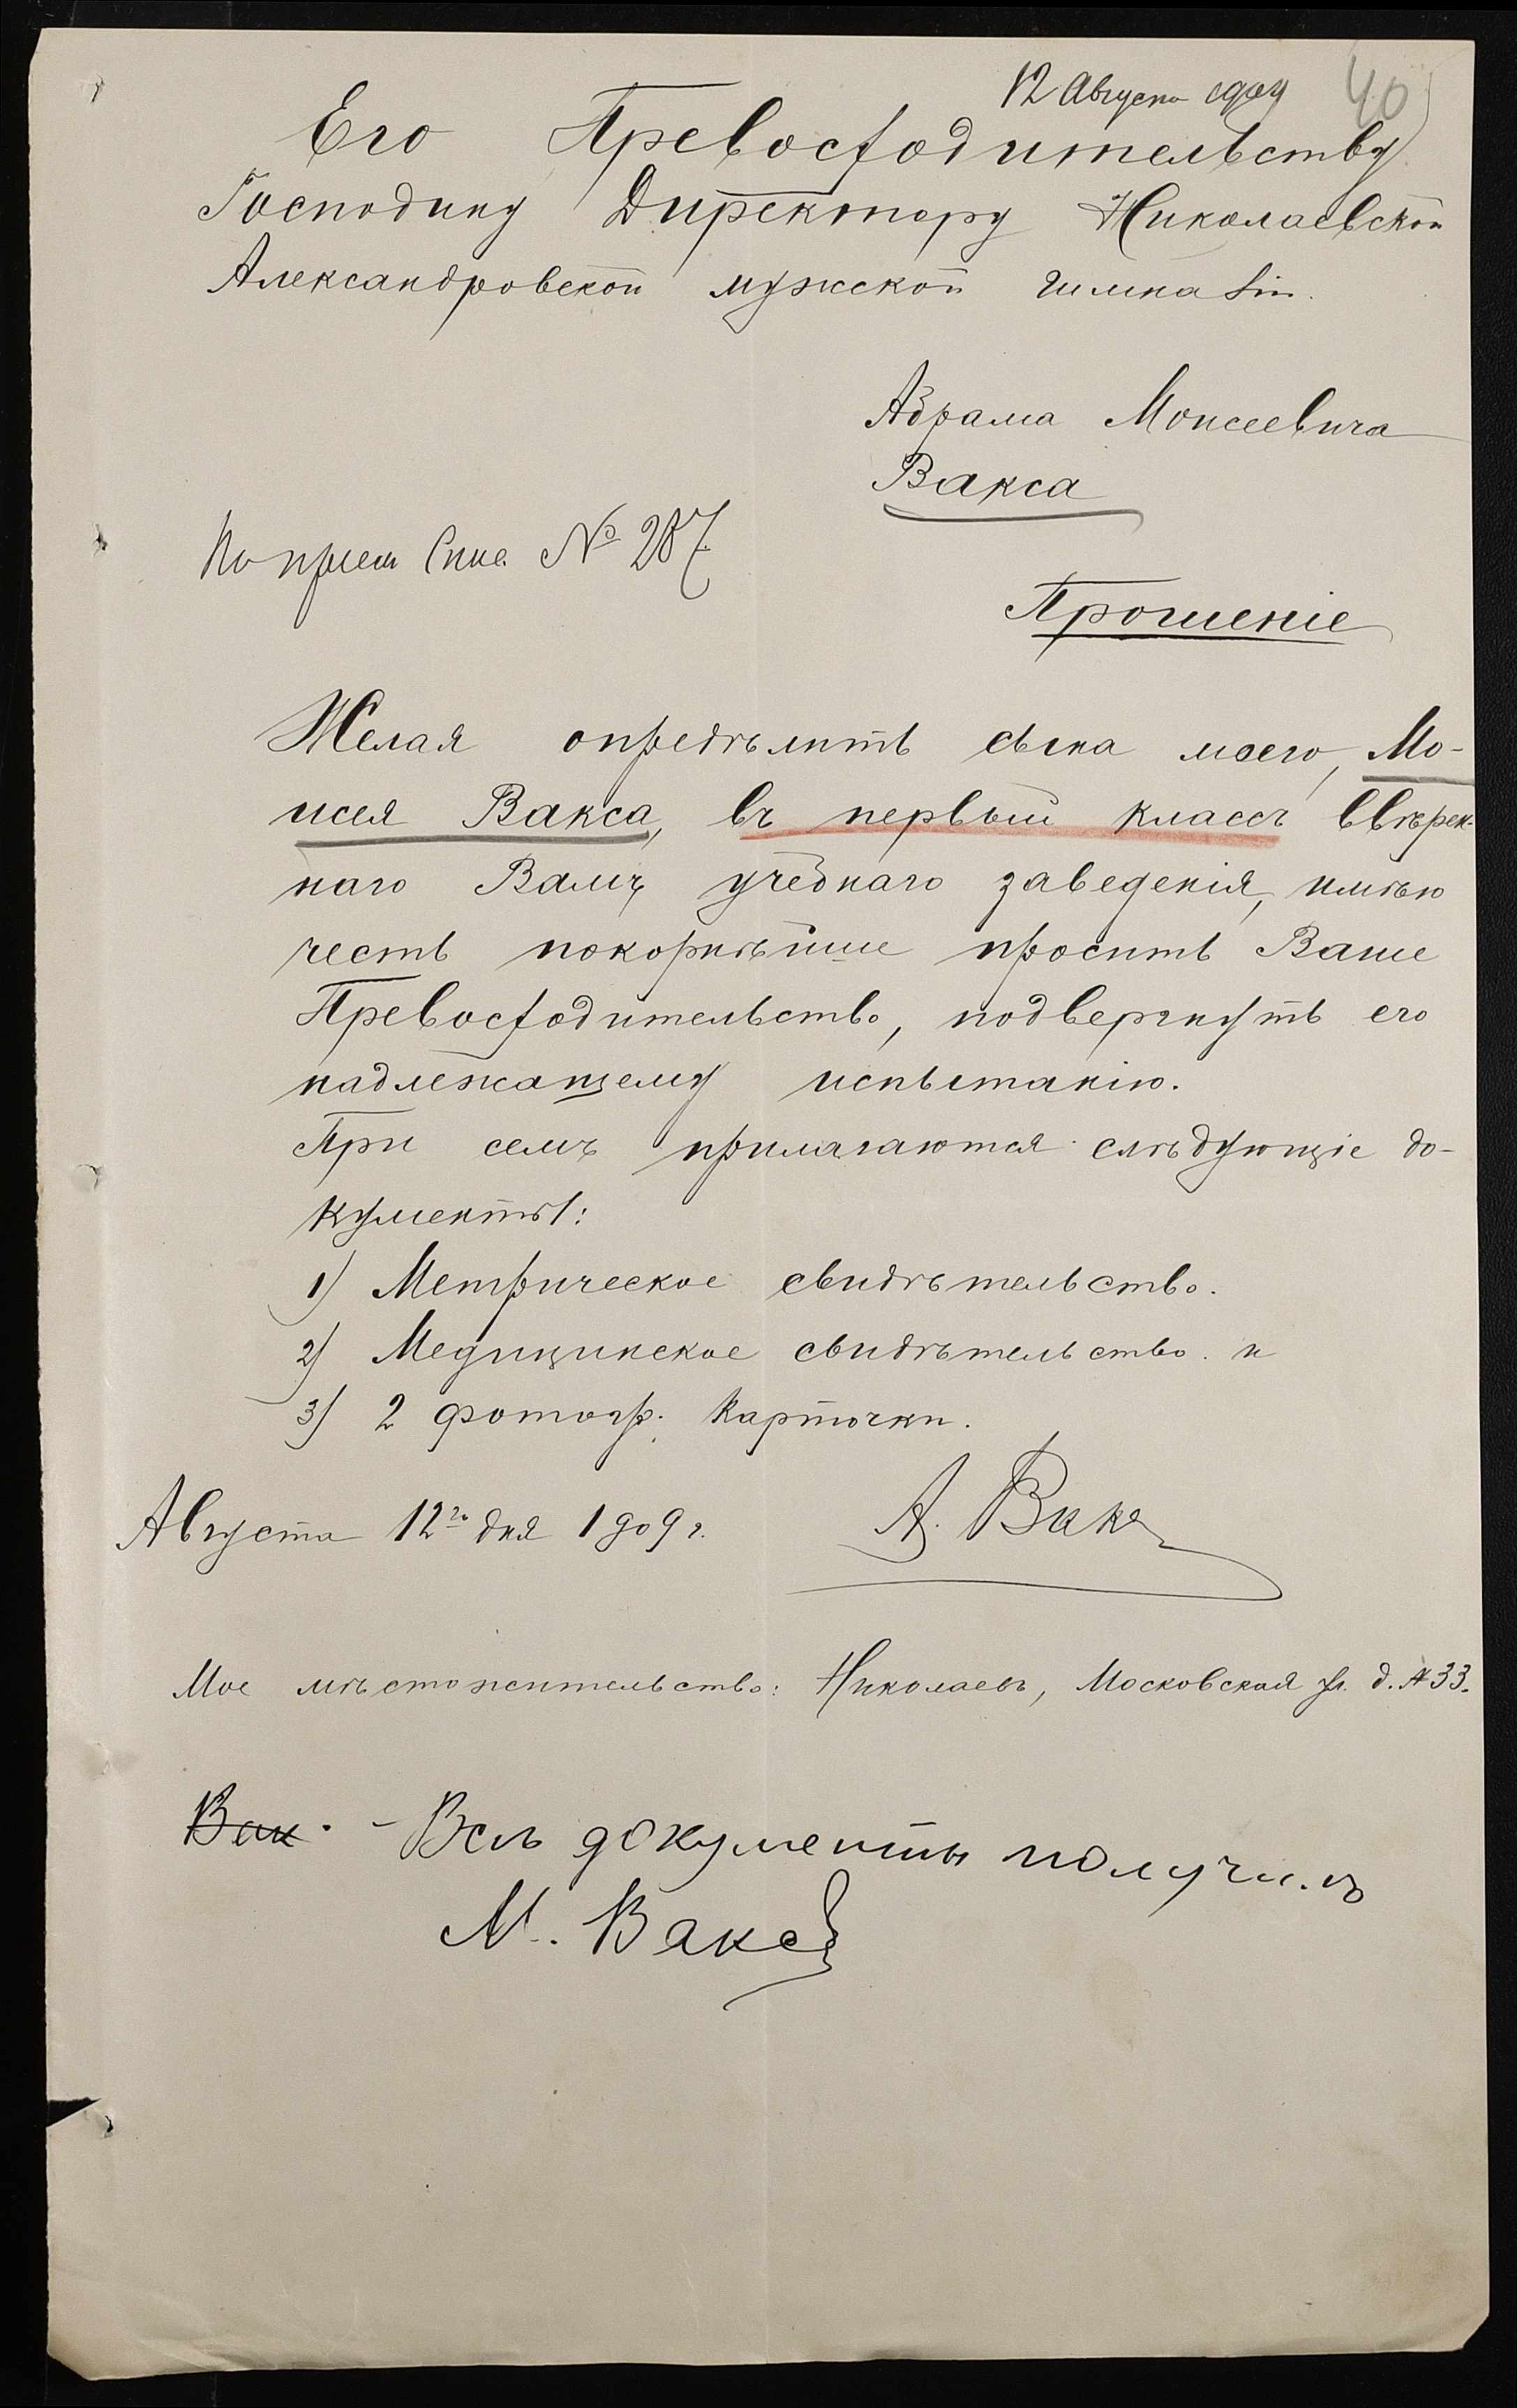 12 Августа 1909
40
Его Превосходительству
Господину Директору Николаевской
Александровской мужской гимназіи.
Абрама Моисеевича
Вакса
По прием. спис. № 287.
Прошеніе
Желая опредѣлить сына моего, Мо-
исея Вакса, въ первый классъ ввѣрен-
наго Вамъ учебнаго заведенія, имѣю
честь покорнѣйше просить Ваше
Превосходительство, подвергнуть его
надлежащему испытанію.
При семъ прилагаются слѣдующіе до-
кументы:
1) Метрическое свидѣтельство.
2) Медицинское свидѣтельство. и
3) 2 фотогр. карточки.
Августа 12го дня 1909 г.
А. Вакс
Мое мѣстожительство: Николаевъ, Московская ул. д. № 33.
Вак. - Всѣ документы получилъ
М. Вакс